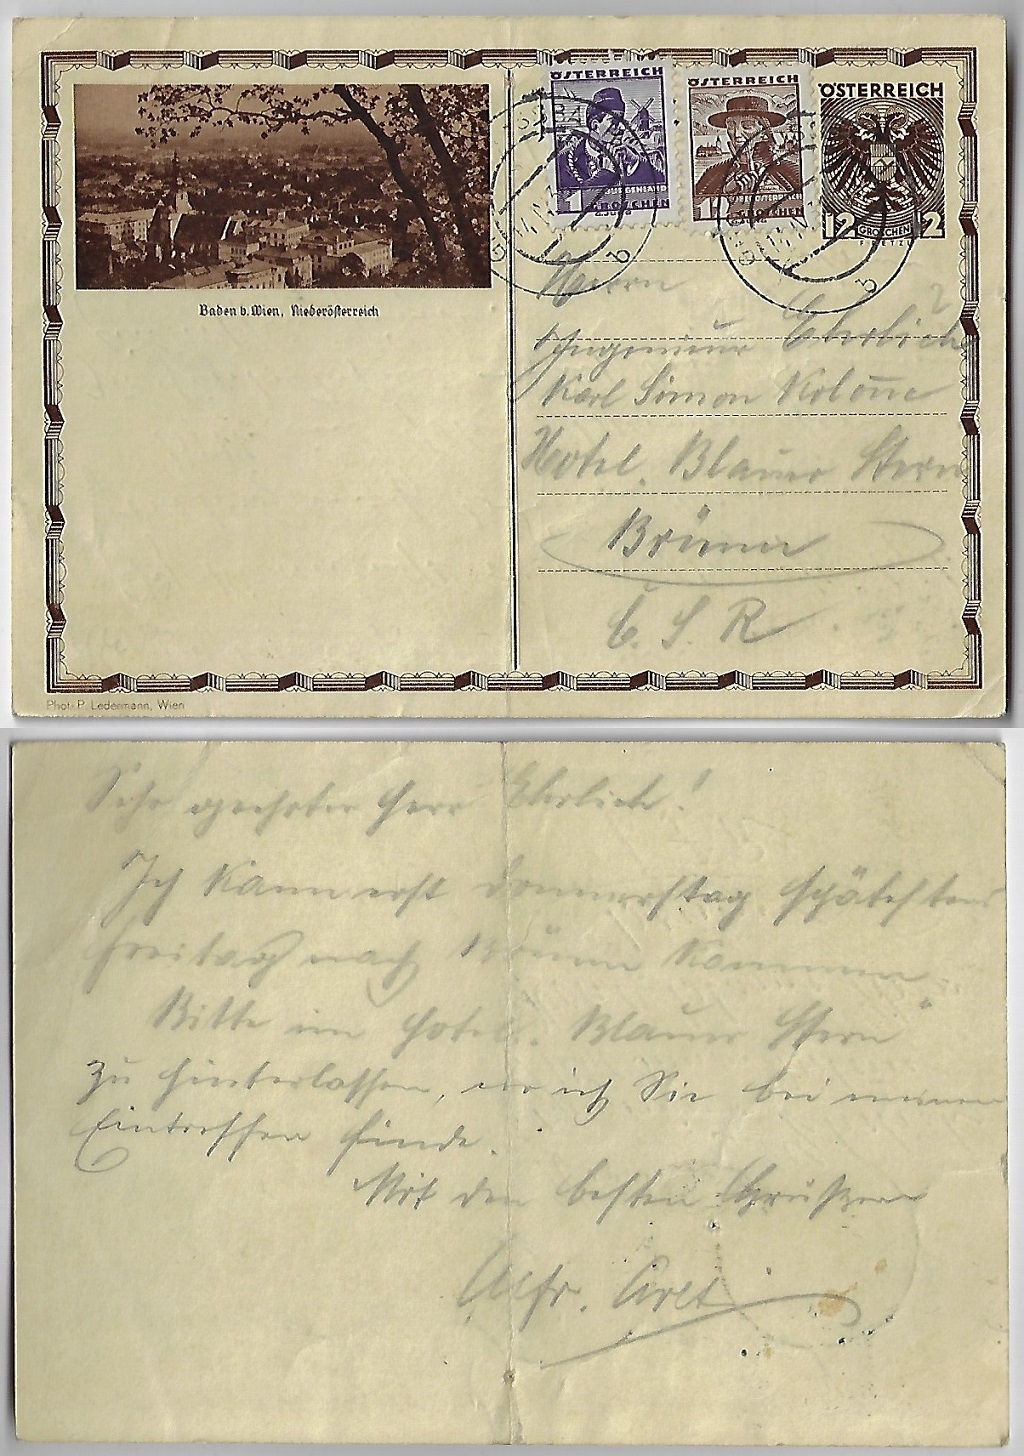 ÖSTERREICH
BURGENLAND
1 GROSCHEN
ÖSTERREICH
1 GROSCHEN
ÖSTERREICH
12 GROSCHEN 12
Baden b. Wien, Niederösterreich
Herrn
?
Ingenieur Ehrlich
Karl Simon
Hotel. Blauer Stern
Brünn
Č. S. R
Phot. P. Ledermann, Wien
Sehr geehrter Herr Ehrlich!
Ich kann erst Donnerstag spätestens
Freitag nach Brünn kommen.
Bitte im Hotel. Blauer Stern"
zu hinterlassen, wo ich Sie bei meinem
Eintreffen finde.
Mit den besten Grüßen
Alfr.